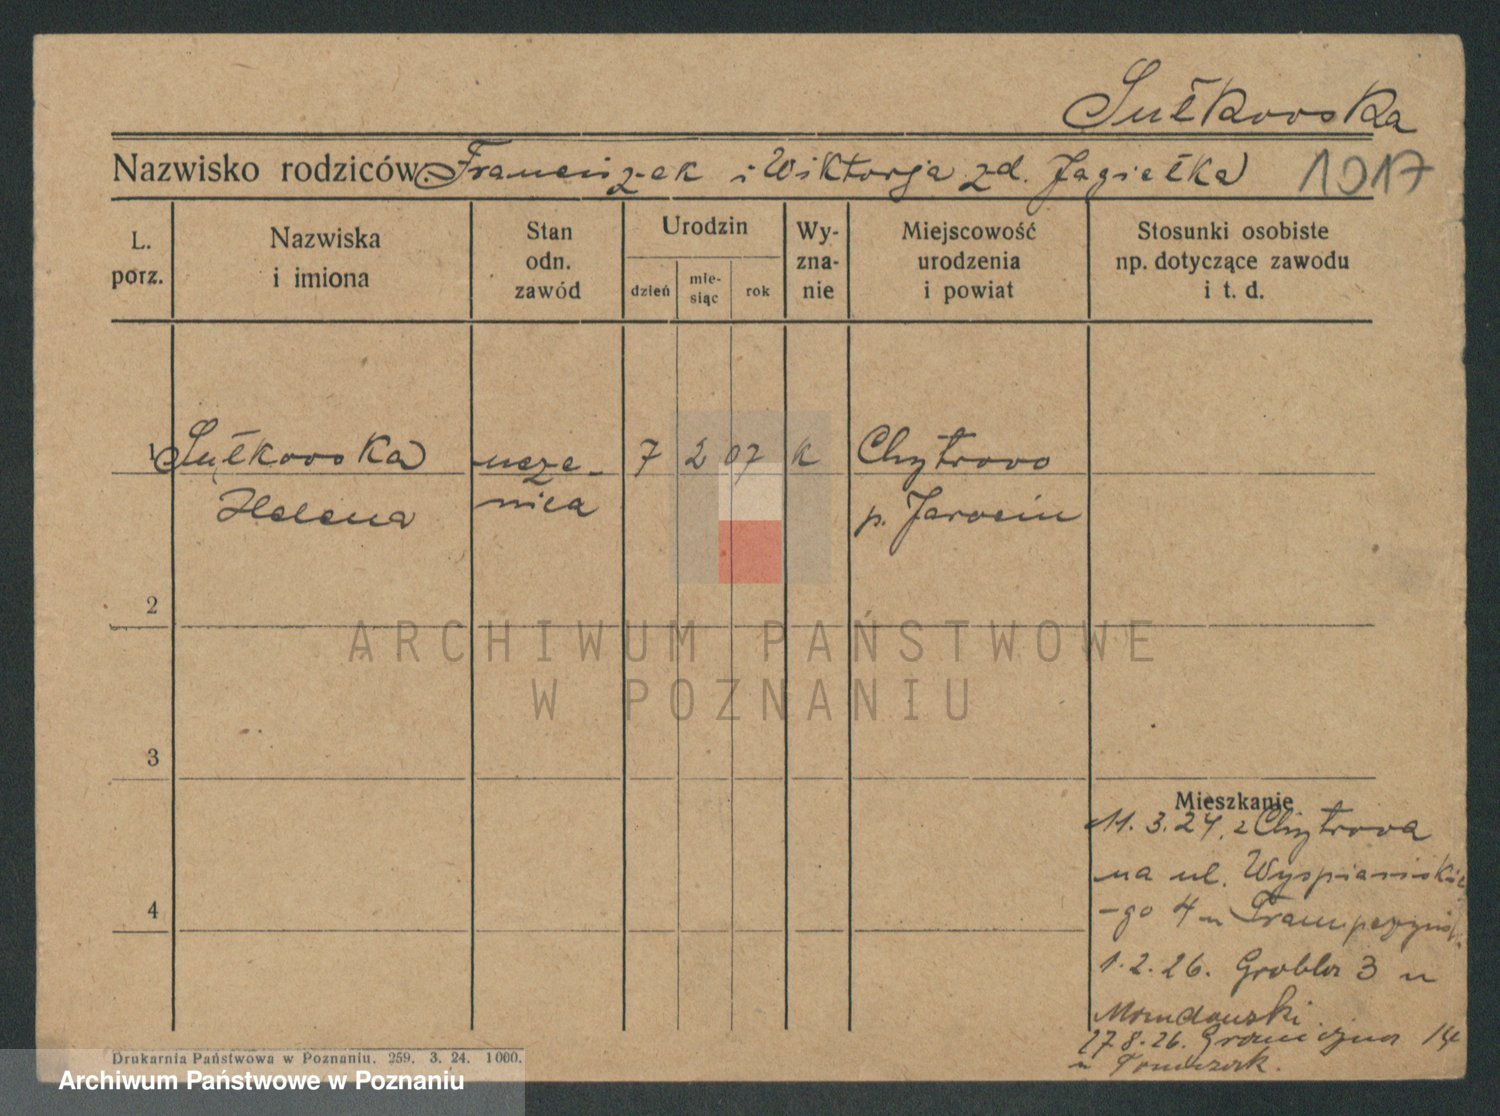 Sułkowska
Nazwisko rodziców: Franciszek i Wiktorja zd. Jagiełka 1017
L. porz.
Nazwiska i imiona
Stan odn. zawód
Urodzin
dzień
mie-siąc
rok
Wy-zna-nie
Miejscowość urodzenia i powiat
Stosunki osobiste np. dotyczące zawodu i t. d.
1 Sułkowska ucze- 7 2 07 k Chytrowo
Helena nica p. Jarocin
2
3
4
Mieszkanie
11. 3. 24. z Chytrowa
na ul. Wyspiański
-go 4 u
1. 2. 26. Grobla 3 u
27.8.26. Graniczna 14
u Tomczak.
Drukarnia Państwowa w Poznaniu. 259. 3. 24. 1000.
ARCHIWUM PAŃSTWOWE
W POZNANIU
Archiwum Państwowe w Poznaniu